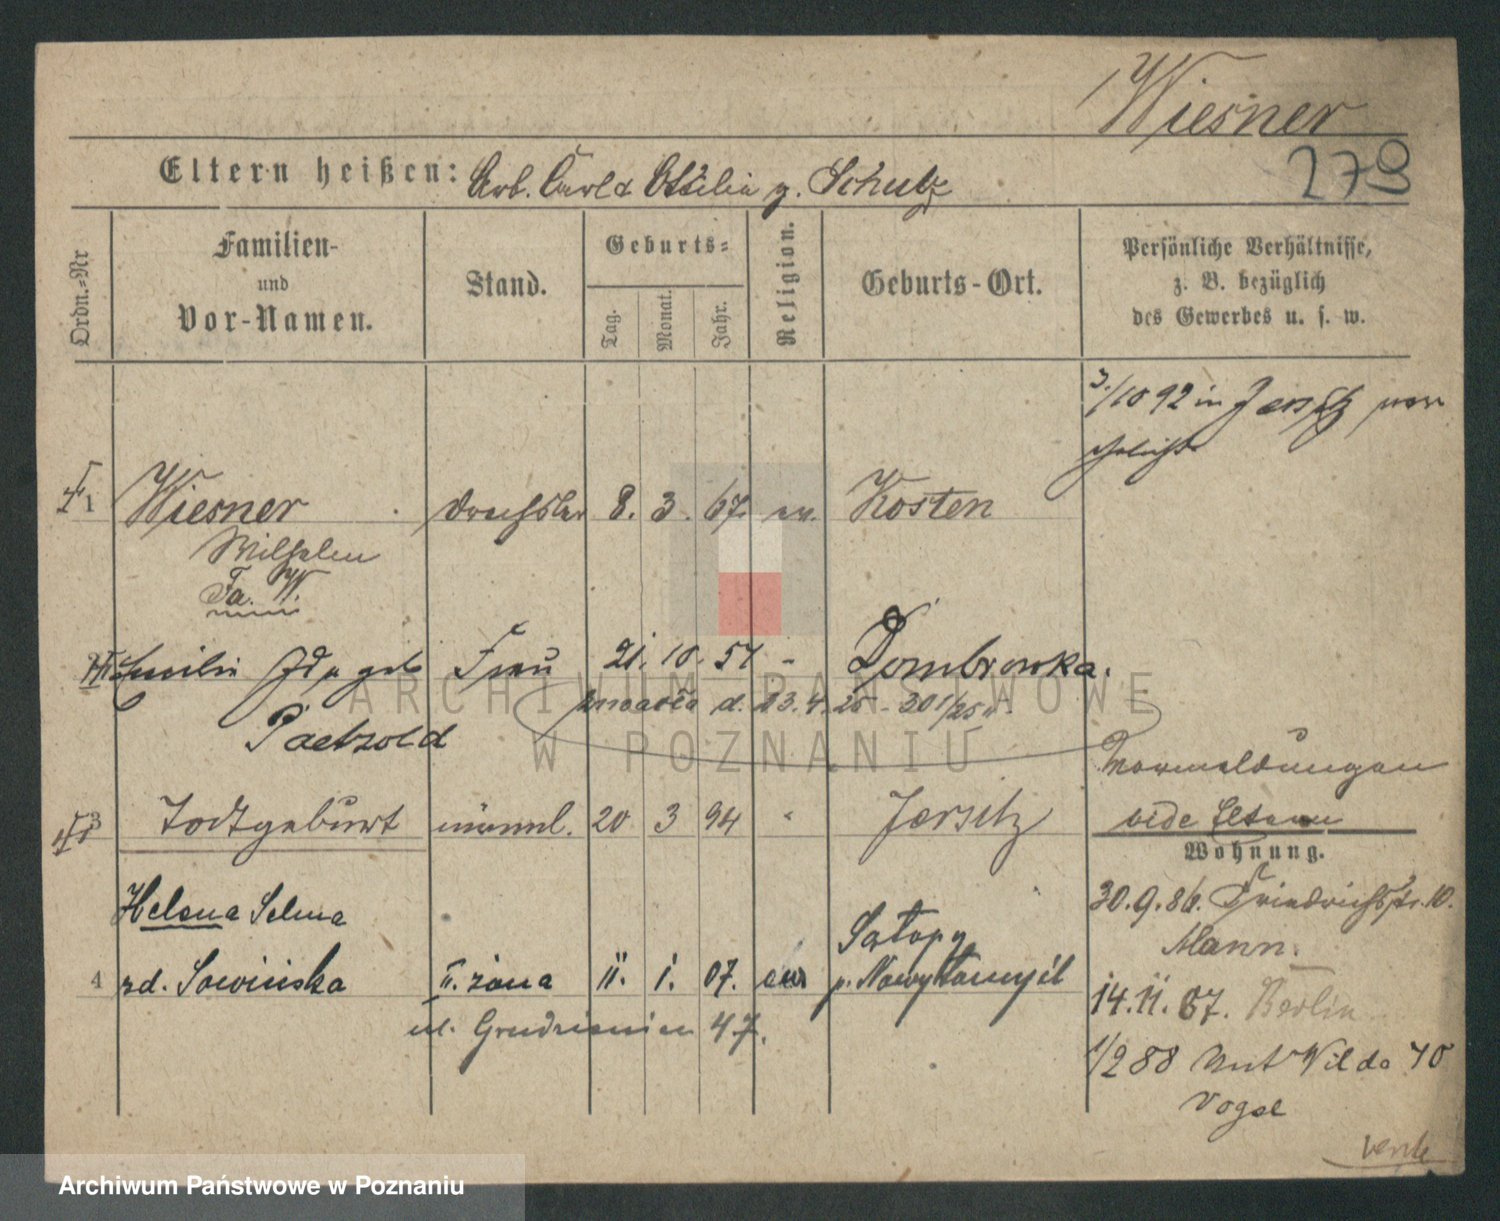 Wiesner
279
Eltern heißen: Arb. Carl & Ottilia g. Schulz
Ordn.-Nr
Familien-
und
Vor-Namen.
Stand.
Geburts-
Tag.
Monat.
Jahr.
Religion.
Geburts-Ort.
Persönliche Verhältnisse,
z. B. bezüglich
des Gewerbes u. s. w.
3./10 92 in Jersitz ver
ehelicht
1 Wiesner Drechsler 8. 3. 67. ev. Kosten
Wilhelm
Fa. W.
Emilie Ida geb Frau 21. 10. 57 - Dombrowka.
Paetzold
zmarła d. 23.4.25 - 301/25
Vermeldungen
vide Eltern
3 Todtgeburt männl. 20 3 94 " Jersitz
Wohnung.
30.9.86. Friedrichstr. 10.
Mann.
14.11.87. Berlin
1/2 88 Unt Wilda 70
Vogel
Helena Selma
4 zd. Sowińska II. żona 11. 1. 07. ew Satopy
p. Nowytomyśl
ul. Grudzieniec 47.
verte
ARCHIWUM PAŃSTWOWE
W POZNANIU
Archiwum Państwowe w Poznaniu